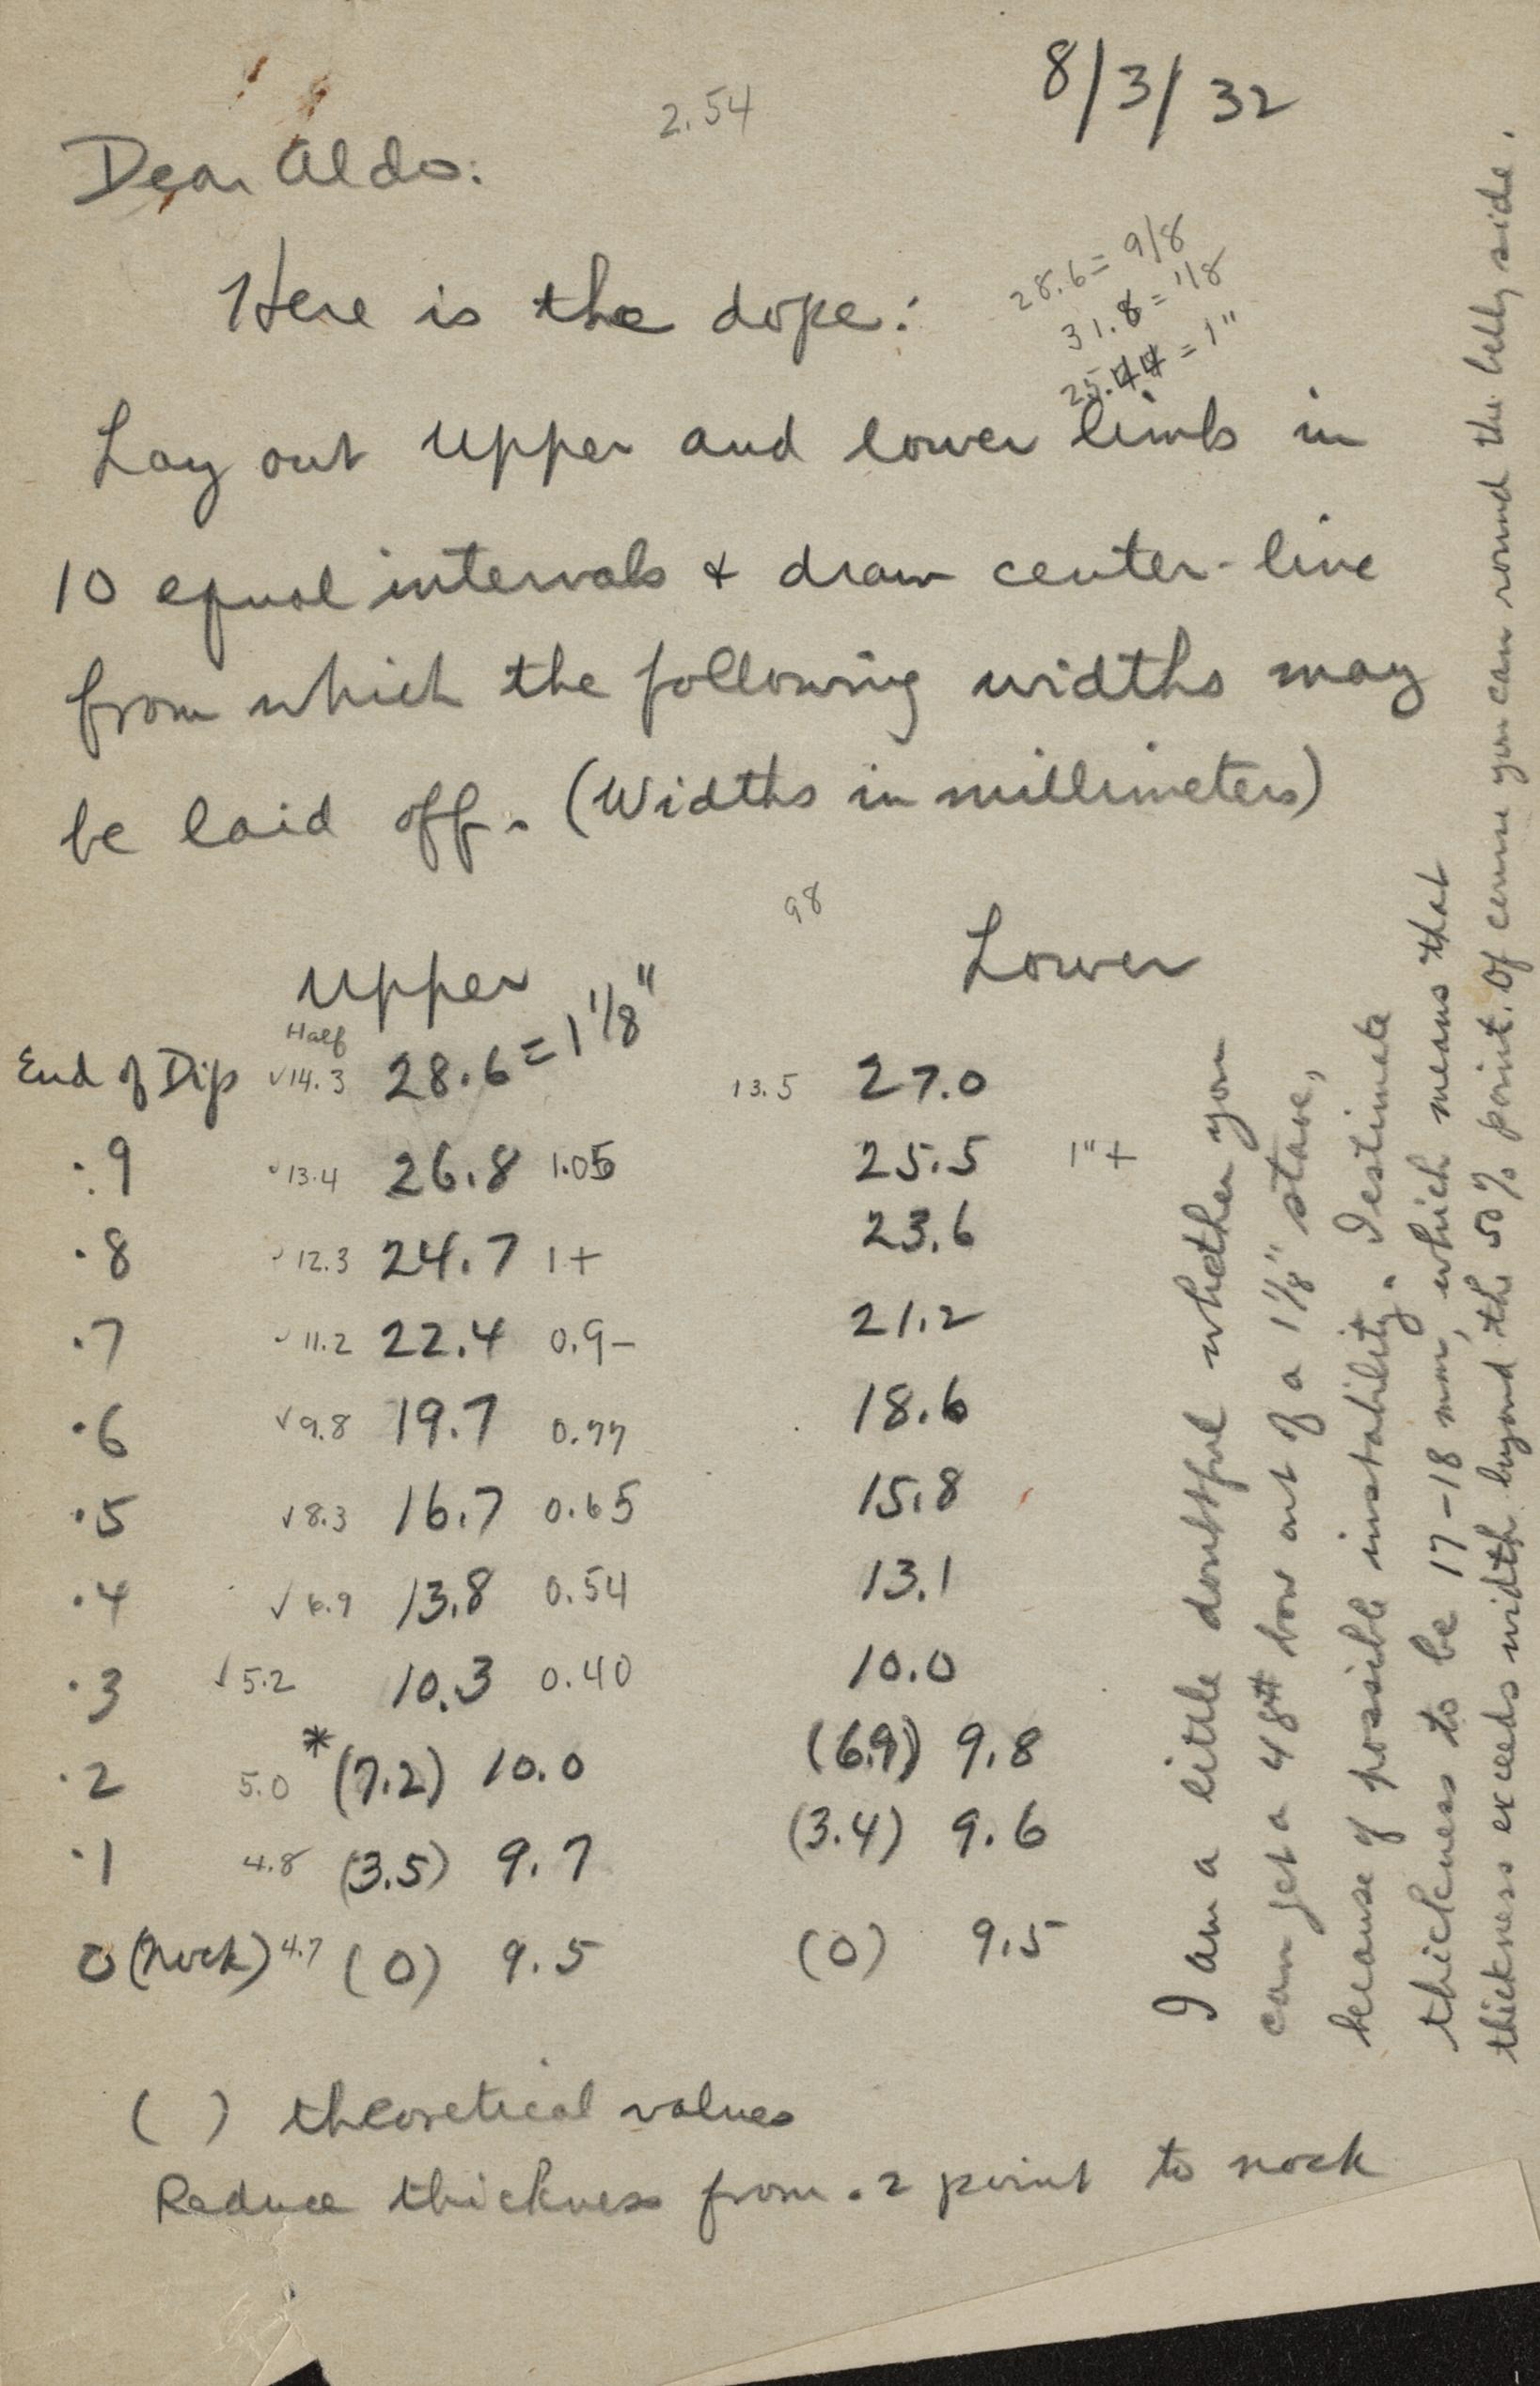 8/3/32
2.54
Dear Aldo:
28.6 = 9/8
31.8 = 1/8
25.44 = 1"
Here is the dope:
Lay out upper and lower limbs in
10 equal intervals & draw center-line
from which the following widths may
be laid off. (Widths in millimeters)
98
Upper Lower
Half
End of Dip √14.3 28.6 = 1 1/8" 13.5 27.0
.9 √13.4 26.8 1.05 25.5 1"+
.8 √12.3 24.7 1+ 23.6
.7 √11.2 22.4 0.9– 21.2
.6 √9.8 19.7 0.77 18.6
.5 √8.3 16.7 0.65 15.8
.4 √6.9 13.8 0.54 13.1
.3 √5.2 10.3 0.40 10.0
.2 5.0 *(7.2) 10.0 (6.9) 9.8
.1 4.8 (3.5) 9.7 (3.4) 9.6
0 (nock) 4.7 (0) 9.5 (0) 9.5
( ) theoretical values
Reduce thickness from .2 point to nock
I am a little doubtful whether you
can get a 48# bow out of a 1 1/8" stave,
because of possible instability. I estimate
thickness to be 17–18 mm, which means that
thickness exceeds width beyond the 50% point. Of course you can round the belly side.